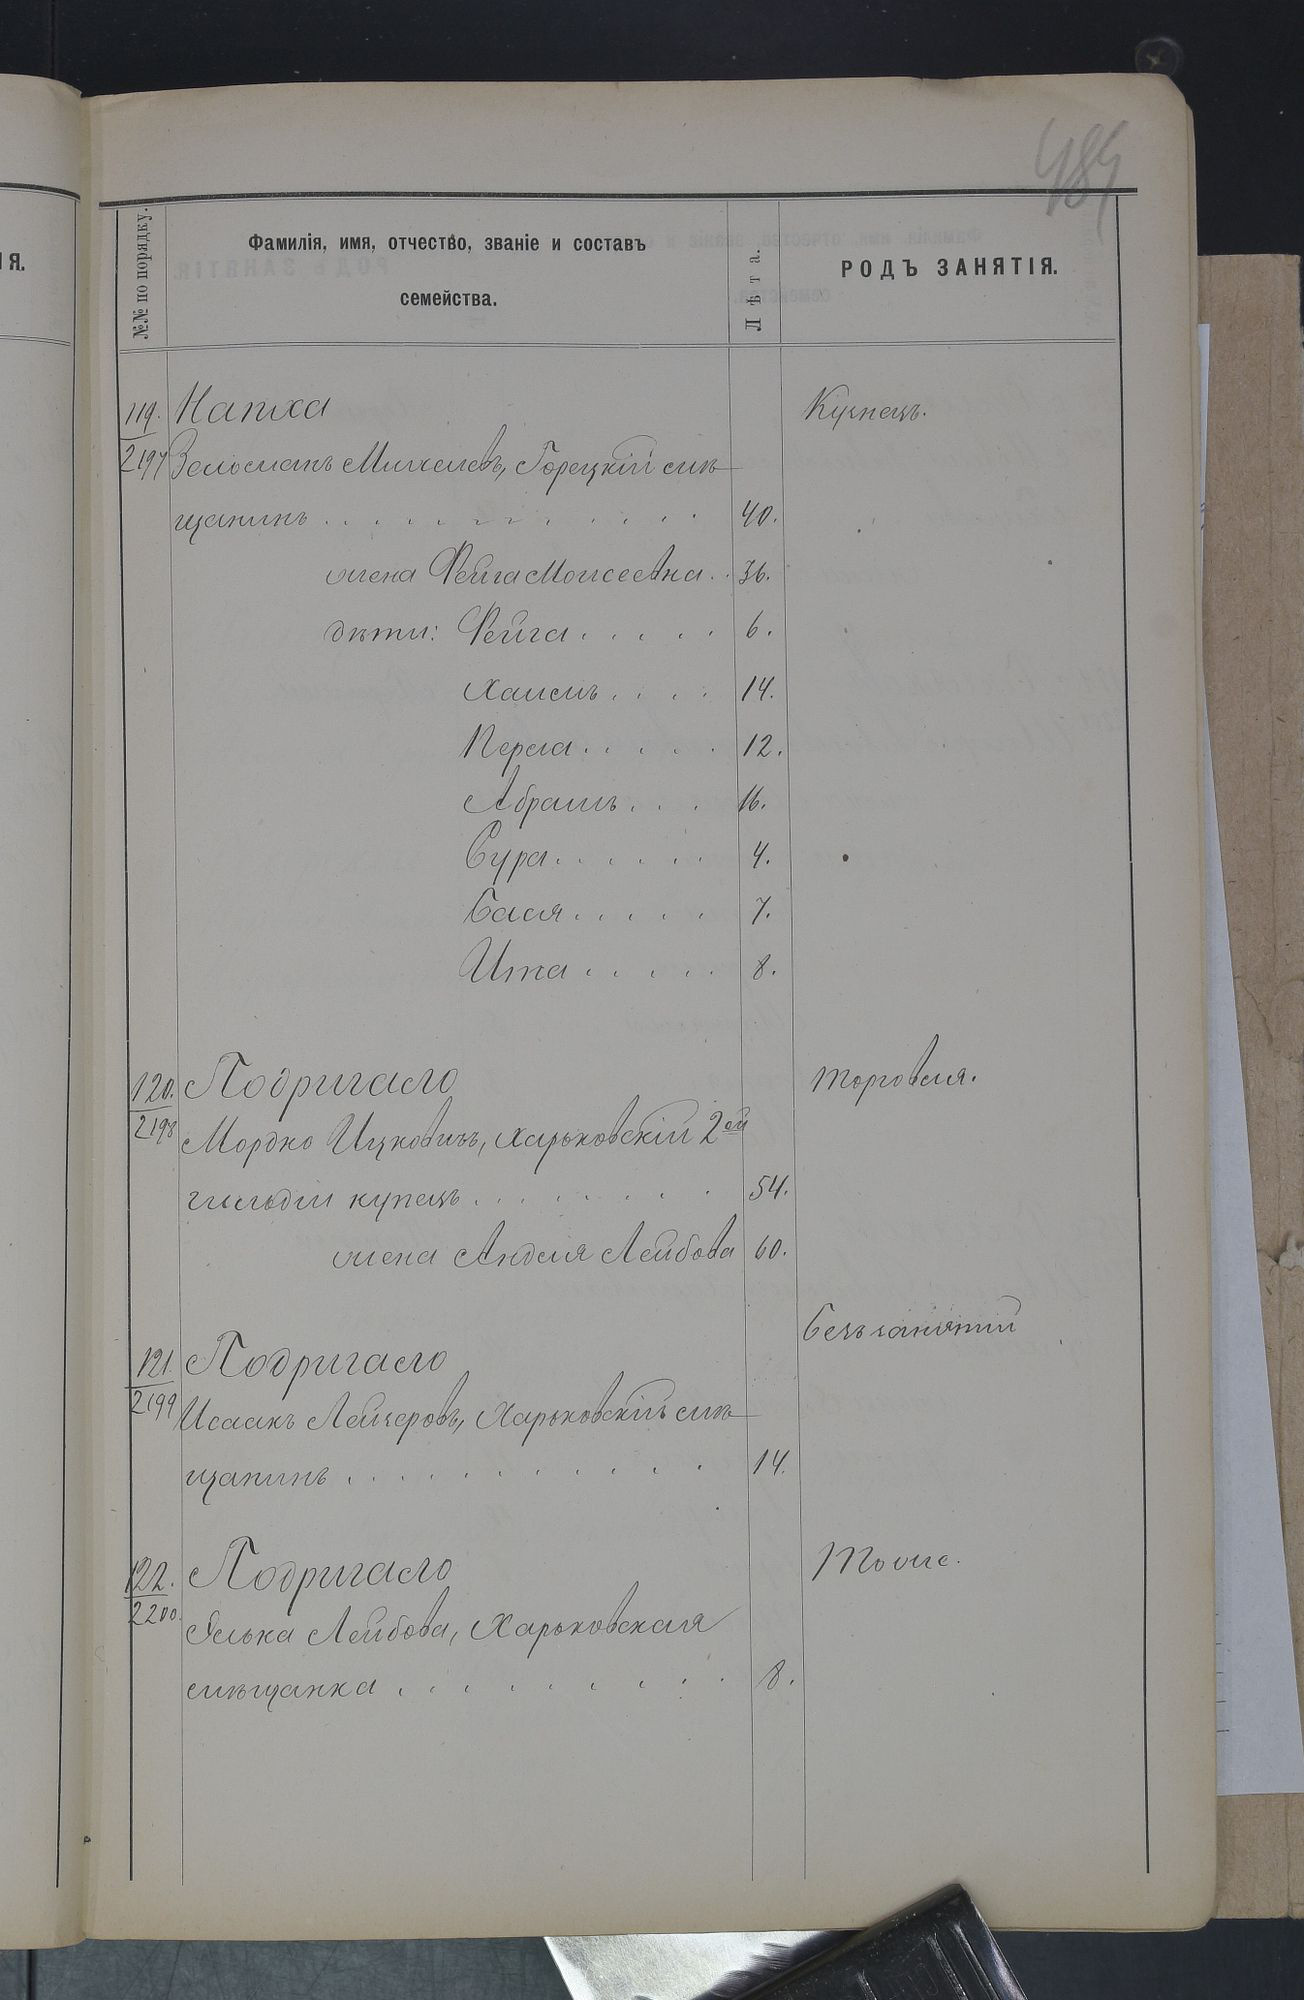 489
№№ по порядку.
Фамилія, имя, отчество, званіе и составъ
семейства.
Лѣта.
РОДЪ ЗАНЯТІЯ.
ІЯ.
119. Напха Купецъ.
2197 Залманъ Михелевъ, Горецкій мѣ
щанинъ . . . . . . . . . . . . 40.
жена Фейга Моисеевна . . 36.
дѣти: Фейга . . . . . 6.
Хаимъ . . . . 14.
Перла . . . . . 12.
Абрамъ . . . 16.
Сура . . . . . . 4.
Бася . . . . . 7.
Ита . . . . . 8.
120. Подригало торговля.
2198 Мордко Ицковичъ, Харьковскій 2ой
гильдіи купецъ . . . . . . . 54.
жена Андля Лейбова 60.
Безъ занятій
121. Подригало
2199 Исаакъ Лейзеровъ, Харьковскій мѣ
щанинъ . . . . . . . . . . . 14.
122. Подригало Тоже.
2200. Элька Лейбова, Харьковская
мѣщанка . . . . . . . . . 8.